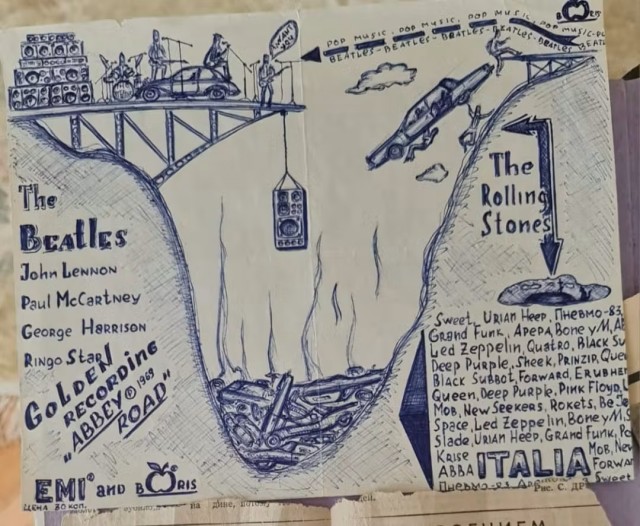 BORIS
I WANT YOU
POP MUSIC, POP MUSIC, POP MUSIC, POP MUSIC-P
BEATLES-BEATLES-BEATLES-BEATLES-BEATLES-BEAT
The
BEATLES
John Lennon
Paul McCartney
George Harrison
Ringo Star
GOLDEN
RECORDING
"ABBEY © 1969
ROAD"
EMI and BORIS
ЦЕНА 30 КОП.
The
Rolling
Stones
Sweet, Urian Heep, Пневмо-83,
Grand Funk, Apepa, Bone y/M, AB
Led Zeppelin, Quatro, Black Su
Deep Purple, Sheek, Prinzip, Quee
Black Subbot, Forward, Erubher
Queen, Deep Purple, Pink Floyd, L
Mob, New Seekers, Rokets, Be Je
Space, Led Zeppelin, Boney/M, S
Slade, Urian Heep, Grand Funk, Po
Krise Mob, New
ABBA ITALIA Forwar
Sweet
Рис. С. ДР
на дине, потому
лей.